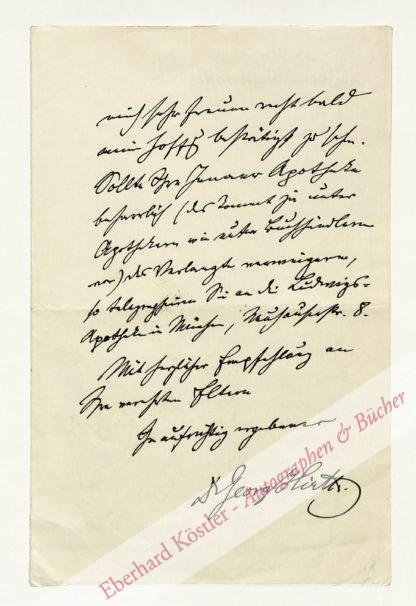 mich sehr freuen recht bald
mein Hoffs bestätigt zu sehn.
Sollte Ihre Jenaer Apotheke
beharrlich (das kommt ja unter
Apothekern wie unter Buchhändlern
vor) das Verlangte verweigern,
so telegraphiren Sie an die Ludwigs-
Apotheke in München, Neuhauserstr. 8.
Mit herzlicher Empfehlung an
Ihre verehrten Eltern
Ihr aufrichtig ergebener
Dr Georg Hirth.
Eberhard Köstler - Autographen & Bücher